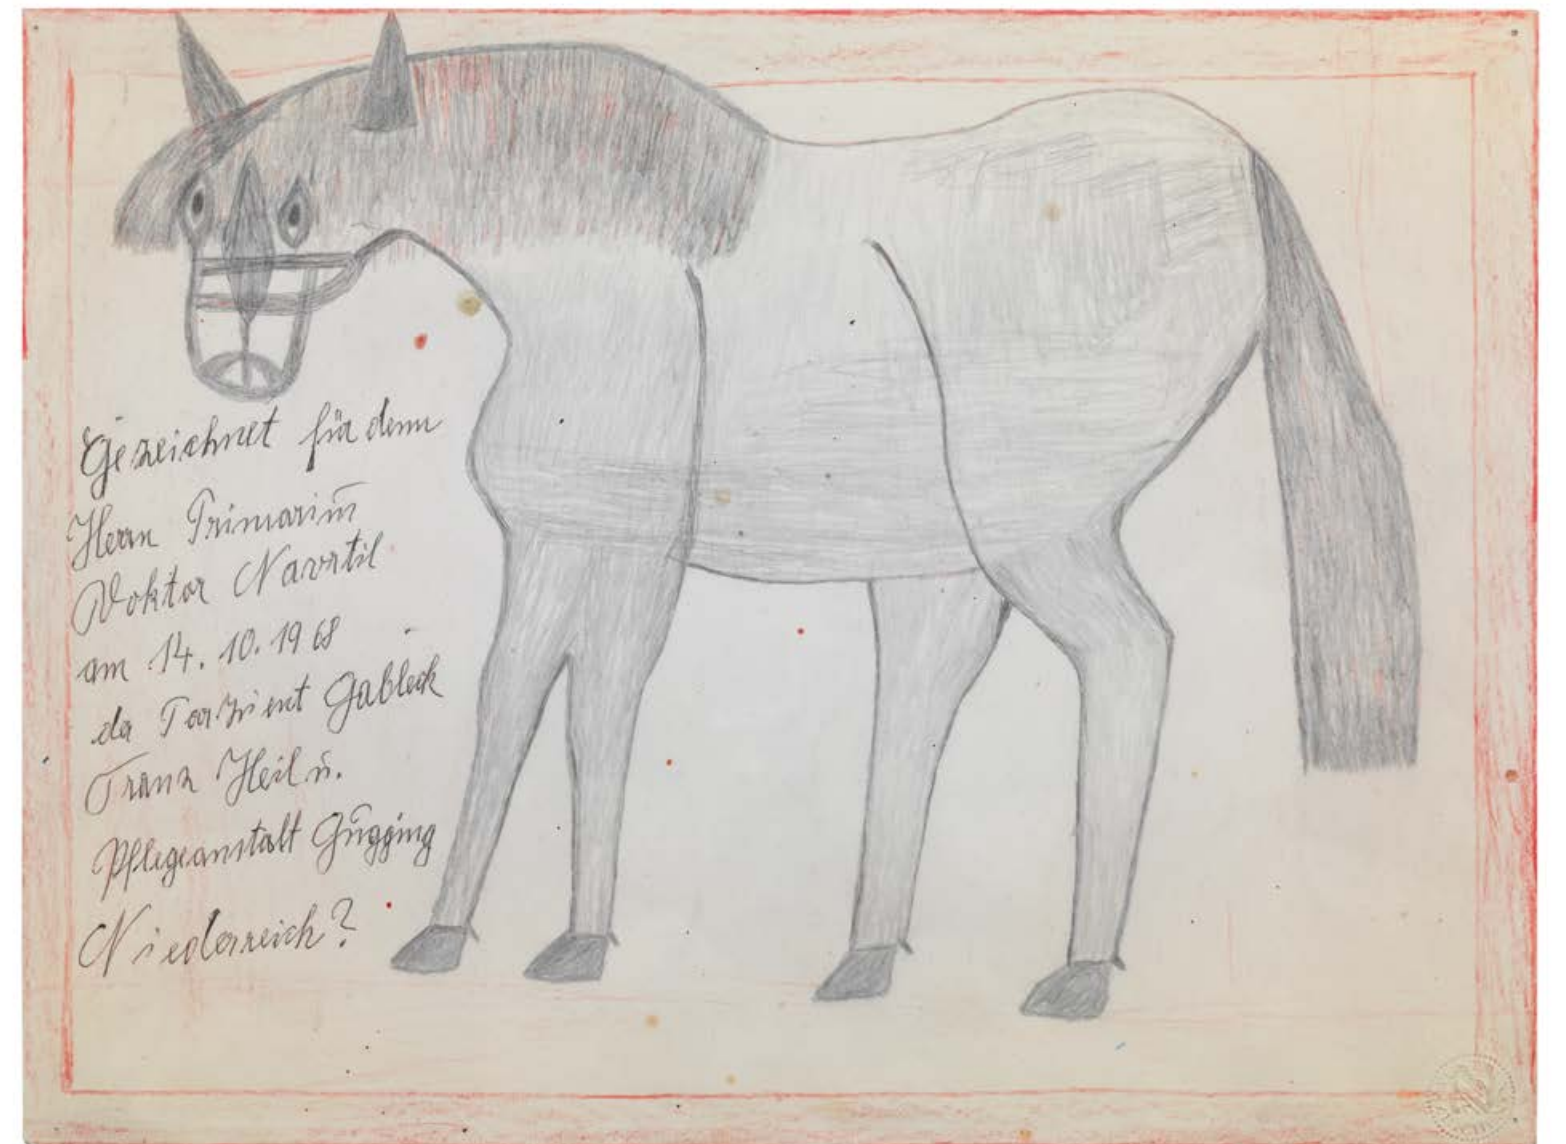 Gezeichnet für denn
Herrn Primariū
Doktor Navratil
am 14. 10. 1968
da Pazient Gableck
Franz Heil ū.
Pflegeanstalt Gūgging
Niederreich?